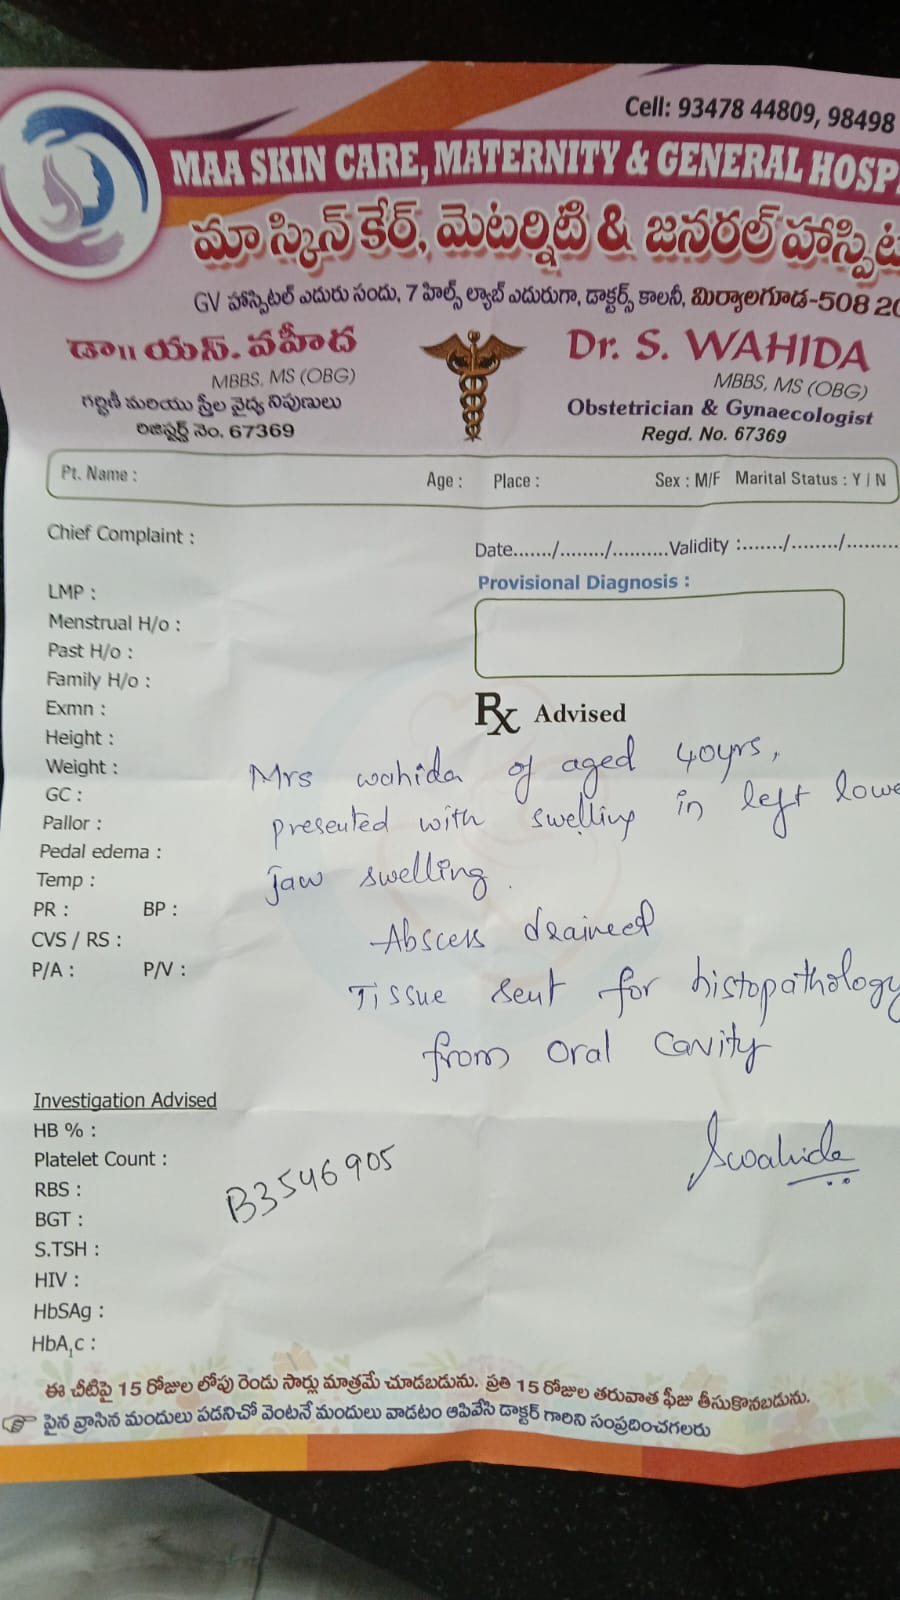 Cell: 93478 44809, 98498
MAA SKIN CARE, MATERNITY & GENERAL HOSP
మా స్కిన్ కేర్, మెటర్నిటి & జనరల్ హాస్పిట
GV హాస్పిటల్ ఎదురు సందు, 7 హిల్స్ ల్యాబ్ ఎదురుగా, డాక్టర్స్ కాలనీ, మిర్యాలగూడ-508 20
డా॥ యస్. వహీద
MBBS, MS (OBG)
గర్భిణీ మరియు స్త్రీల వైద్య నిపుణులు
రిజిస్టర్డ్ నెం. 67369
Dr. S. WAHIDA
MBBS, MS (OBG)
Obstetrician & Gynaecologist
Regd. No. 67369
Pt. Name : Age : Place : Sex : M/F Marital Status : Y / N
Chief Complaint :
Date......./......../..........Validity :......./......../.........
Provisional Diagnosis :
LMP :
Menstrual H/o :
Past H/o :
Family H/o :
Exmn :
Height :
Weight :
GC :
Pallor :
Pedal edema :
Temp :
PR : BP :
CVS / RS :
P/A : P/V :
Rx Advised
Mrs wahida of aged 40yrs,
presented with swelling in left lowe
jaw swelling.
Abscess drained
Tissue sent for histopathology
from oral cavity
Swahida
Investigation Advised
HB % :
Platelet Count :
RBS :
BGT :
S.TSH :
HIV :
HbSAg :
HbA1c :
B3546905
ఈ చీటిపై 15 రోజుల లోపు రెండు సార్లు మాత్రమే చూడబడును. ప్రతి 15 రోజుల తరువాత ఫీజు తీసుకొనబడును.
పైన వ్రాసిన మందులు పడనిచో వెంటనే మందులు వాడటం ఆపివేసి డాక్టర్ గారిని సంప్రదించగలరు